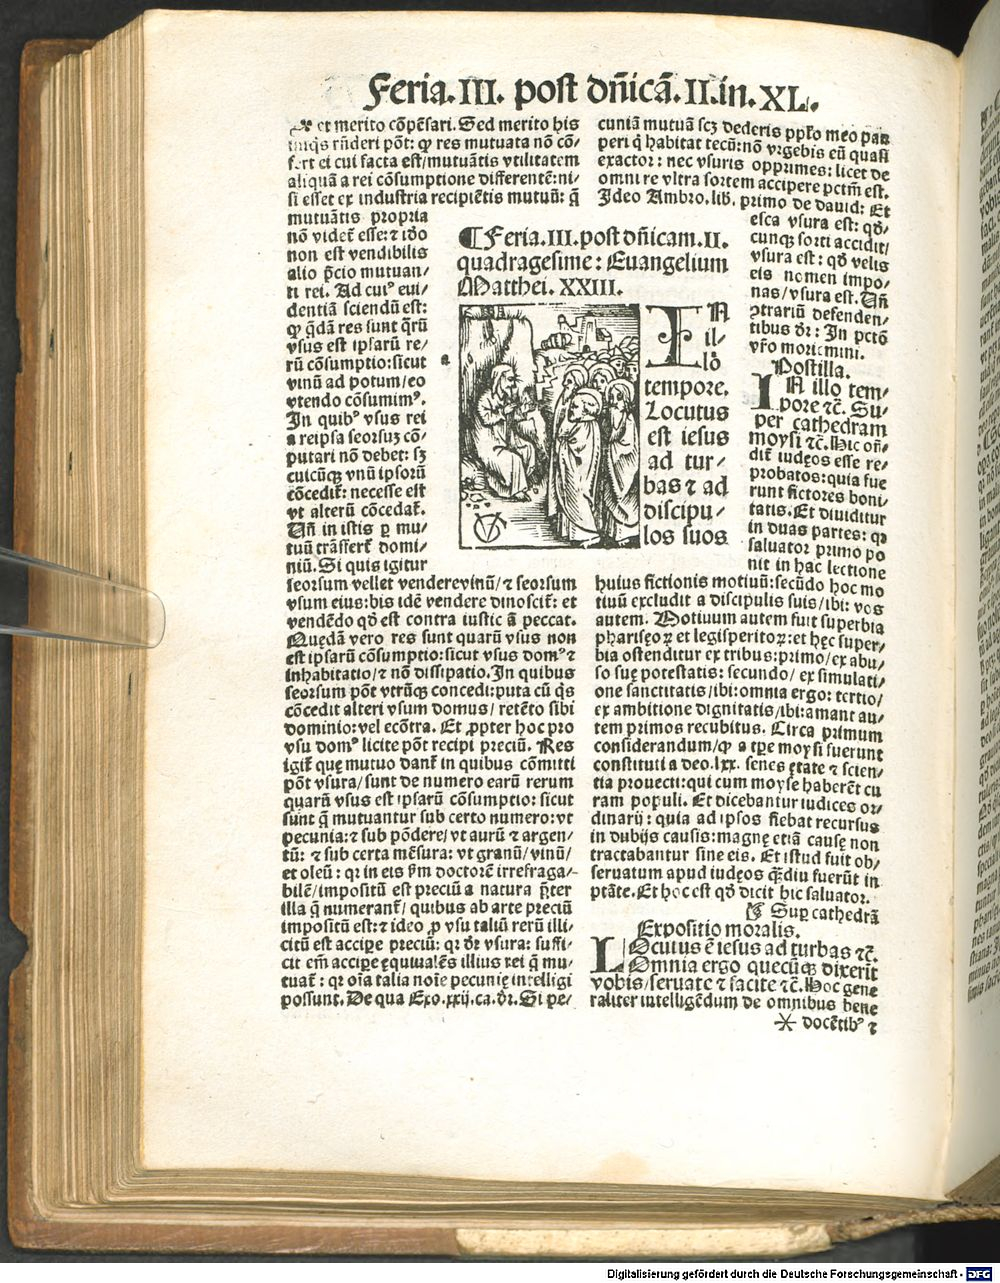 Feria.III. post dñicã.II.in.XL.
et merito cõpẽsari. Sed merito his
rñderi põt: qꝫ res mutuata nõ cõ⸗
fert ei cui facta est/mutuãtis vtilitatem
aliquã a rei cõsumptione differentẽ:ni⸗
si esset ex industria recipiẽtis mutuũ: q̃
mutuãtis propria
nõ videt̃ esse: ⁊ iõo
non est vendibilis
alio p̃cio mutuan⸗
ti rei. Ad cuiꝰ eui⸗
dentiã sciendũ est:
ꝙ q̃dã res sunt q̃rũ
vsus est ipsarũ re⸗
rũ cõsumptio:sicut
vinũ ad potum/eo
vtendo cõsumimꝰ.
In quibꝰ vsus rei
a reipsa seorsuꝫ cõ⸗
putari nõ debet: sꝫ
cuicũqꝫ vnũ ipsorũ
cõcedit̃: necesse est
vt alterũ cõcedat̃.
Uñ in istis ꝑ mu⸗
tuũ trãsfert̃ domi⸗
niũ. Si quis igitur
seorsum vellet venderevinũ/⁊ seorsum
vsum eius:bis idẽ vendere dinoscit̃: et
vendẽdo qð est contra iustic iã peccat.
Quędã vero res sunt quarũ vsus non
est ipsarũ cõsumptio:sicut vsus domꝰ ⁊
inhabitatio/⁊ nõ dissipatio. In quibus
seorsum põt vtrũqꝫ concedi:puta cũ q̃s
cõcedit alteri vsum domus/ retẽto sibi
dominio:vel ecõtra. Et ꝓpter hoc pro
vsu domꝰ licite põt recipi preciũ. Res
igit̃ quę mutuo dant̃ in quibus cõmitti
põt vsura/sunt de numero earũ rerum
quarũ vsus est ipsarũ cõsumptio: sicut
sunt q̃ mutuantur sub certo numero:vt
pecunia:⁊ sub põdere/vt aurũ ⁊ argen⸗
tũ: ⁊ sub certa mẽsura: vt granũ/vinũ/
et oleũ: qꝛ in eis ẜm doctorẽ irrefraga⸗
bilẽ/impositũ est preciũ a natura p̃ter
illa q̃ numerant̃/ quibus ab arte preciũ
impositũ est:⁊ ideo ꝓ vsu taliũ rerũ illi⸗
citũ est accipe preciũ: qꝛ dr̃ vsura: suffi⸗
cit em̃ accipe ęquiualẽs illius rei q̃ mu⸗
tuat̃: qꝛ oĩa talia noĩe pecunię intelligi
possunt. De qua Exo.xxij.ca.dr̃. Si pe⸗
cuniã mutuã scꝫ dederis pp̃lo meo pau
peri q̃ habitat tecũ:nõ vrgebis eũ quasi
exactor: nec vsuris opprimes: licet de
omni re vltra sortem accipere pctm̃ est.
Ideo Ambro. lib. primo de dauid: Et
esca vsura est: qð⸗
cunqꝫ sorti accidit/
vsura est: qð velis
eis nomen impo⸗
nas/vsura est. Uñ
ɔtrariũ defenden⸗
tibus dr̃: In pctõ
vr̃o moriemini.
¶Feria.III.post dñicam.II.
quadragesime: Euangelium
Matthei. XXIII.
IN
il⸗
lo
tempore.
Locutus
est iesus
ad tur⸗
bas ⁊ ad
discipu⸗
los suos
Postilla.
IN illo tem⸗
pore ⁊c̃. Su⸗
per cathedram
moysi ⁊c̃. Hic oñ⸗
dit̃ iudęos esse re⸗
probatos:quia fue
runt fictores boni⸗
tatis. Et diuiditur
in duas partes: qꝛ
saluator primo po
nit in hac lectione
huius fictionis motiuũ:secũdo hoc mo
tiuũ excludit a discipulis suis/ibi: vos
autem. Motiuum autem fuit superbia
pharisęoꝝ et legisperitoꝝ:et hęc super⸗
bia ostenditur ex tribus:primo/ex abu⸗
so suę potestatis: secundo/ ex simulati⸗
one sanctitatis/ibi:omnia ergo: tertio/
ex ambitione dignitatis/ibi:amant au⸗
tem primos recubitus. Circa primum
considerandum/ꝙ a tp̃e moysi fuerunt
constituti a deo.lxx. senes ętate ⁊ scien⸗
tia prouecti:qui cum moyse haberẽt cu
ram populi. Et dicebantur iudices or⸗
dinarij: quia ad ipsos fiebat recursus
in dubijs causis: magnę etiã causę non
tractabantur sine eis. Et istud fuit ob⸗
seruatum apud iudęos q̃ꝫdiu fuerũt in
ptãte. Et hoc est qð dicit hic saluator.
Suꝑ cathedrã
Expositio moralis.
LOcutus ẽ iesus ad turbas ⁊c̃.
Omnia ergo quecũqꝫ dixerit
vobis/seruate ⁊ facite ⁊c̃. Hoc gene
raliter intelligẽdum de omnibus bene
docẽtibꝰ ⁊
Digitalisierung gefördert durch die Deutsche Forschungsgemeinschaft - DFG